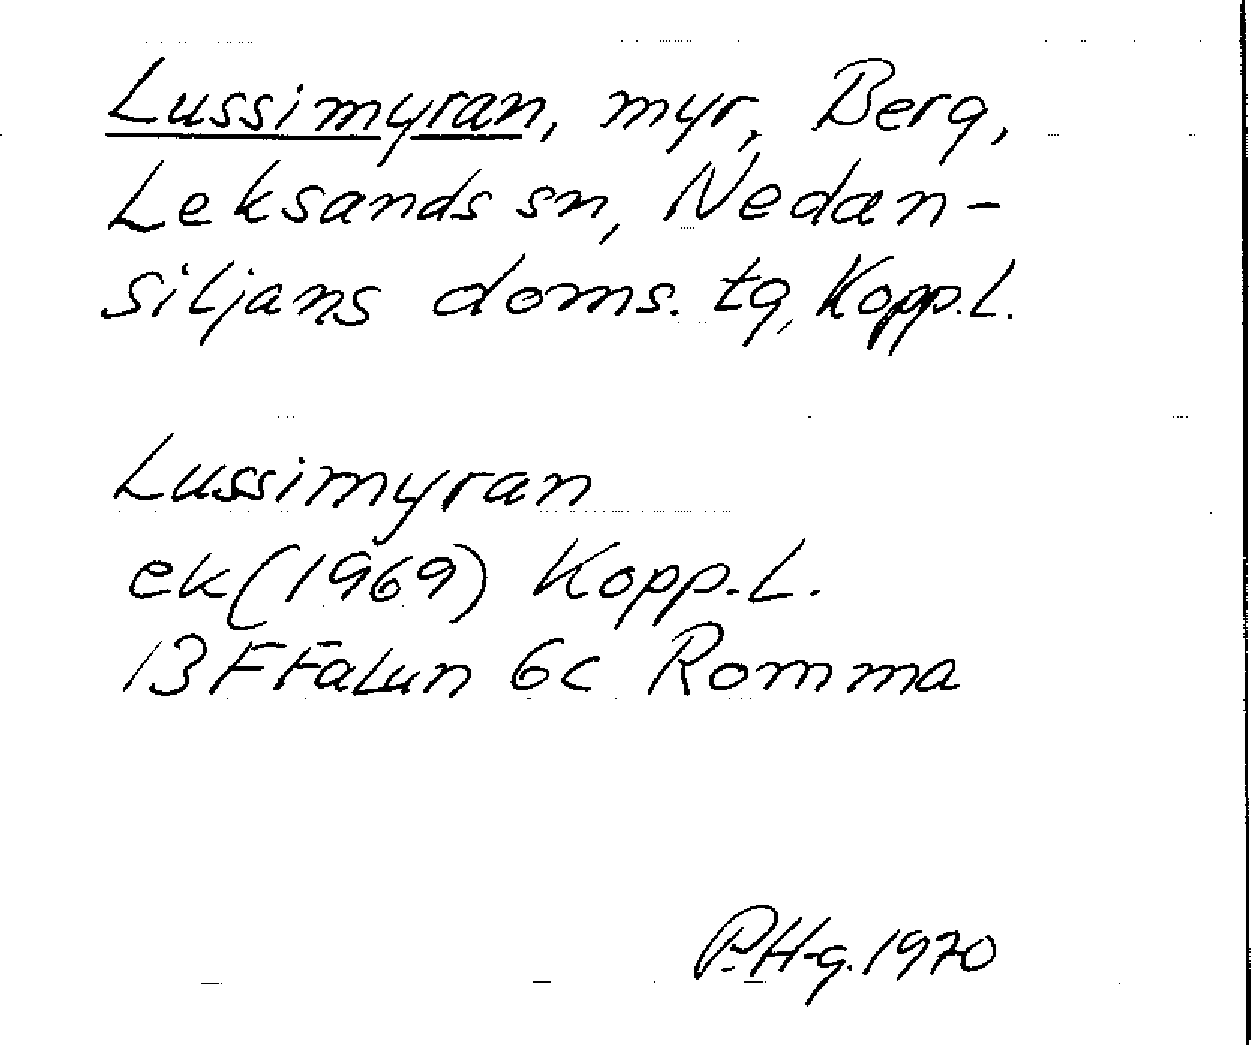 Lussimyran, myr, Berg,
Leksands sn, Nedan-
siljans doms. tg, Kopp.L.
Lussimyran
ek (1969) Kopp.L.
13F Falun 6c Romma
P.H-g. 1970